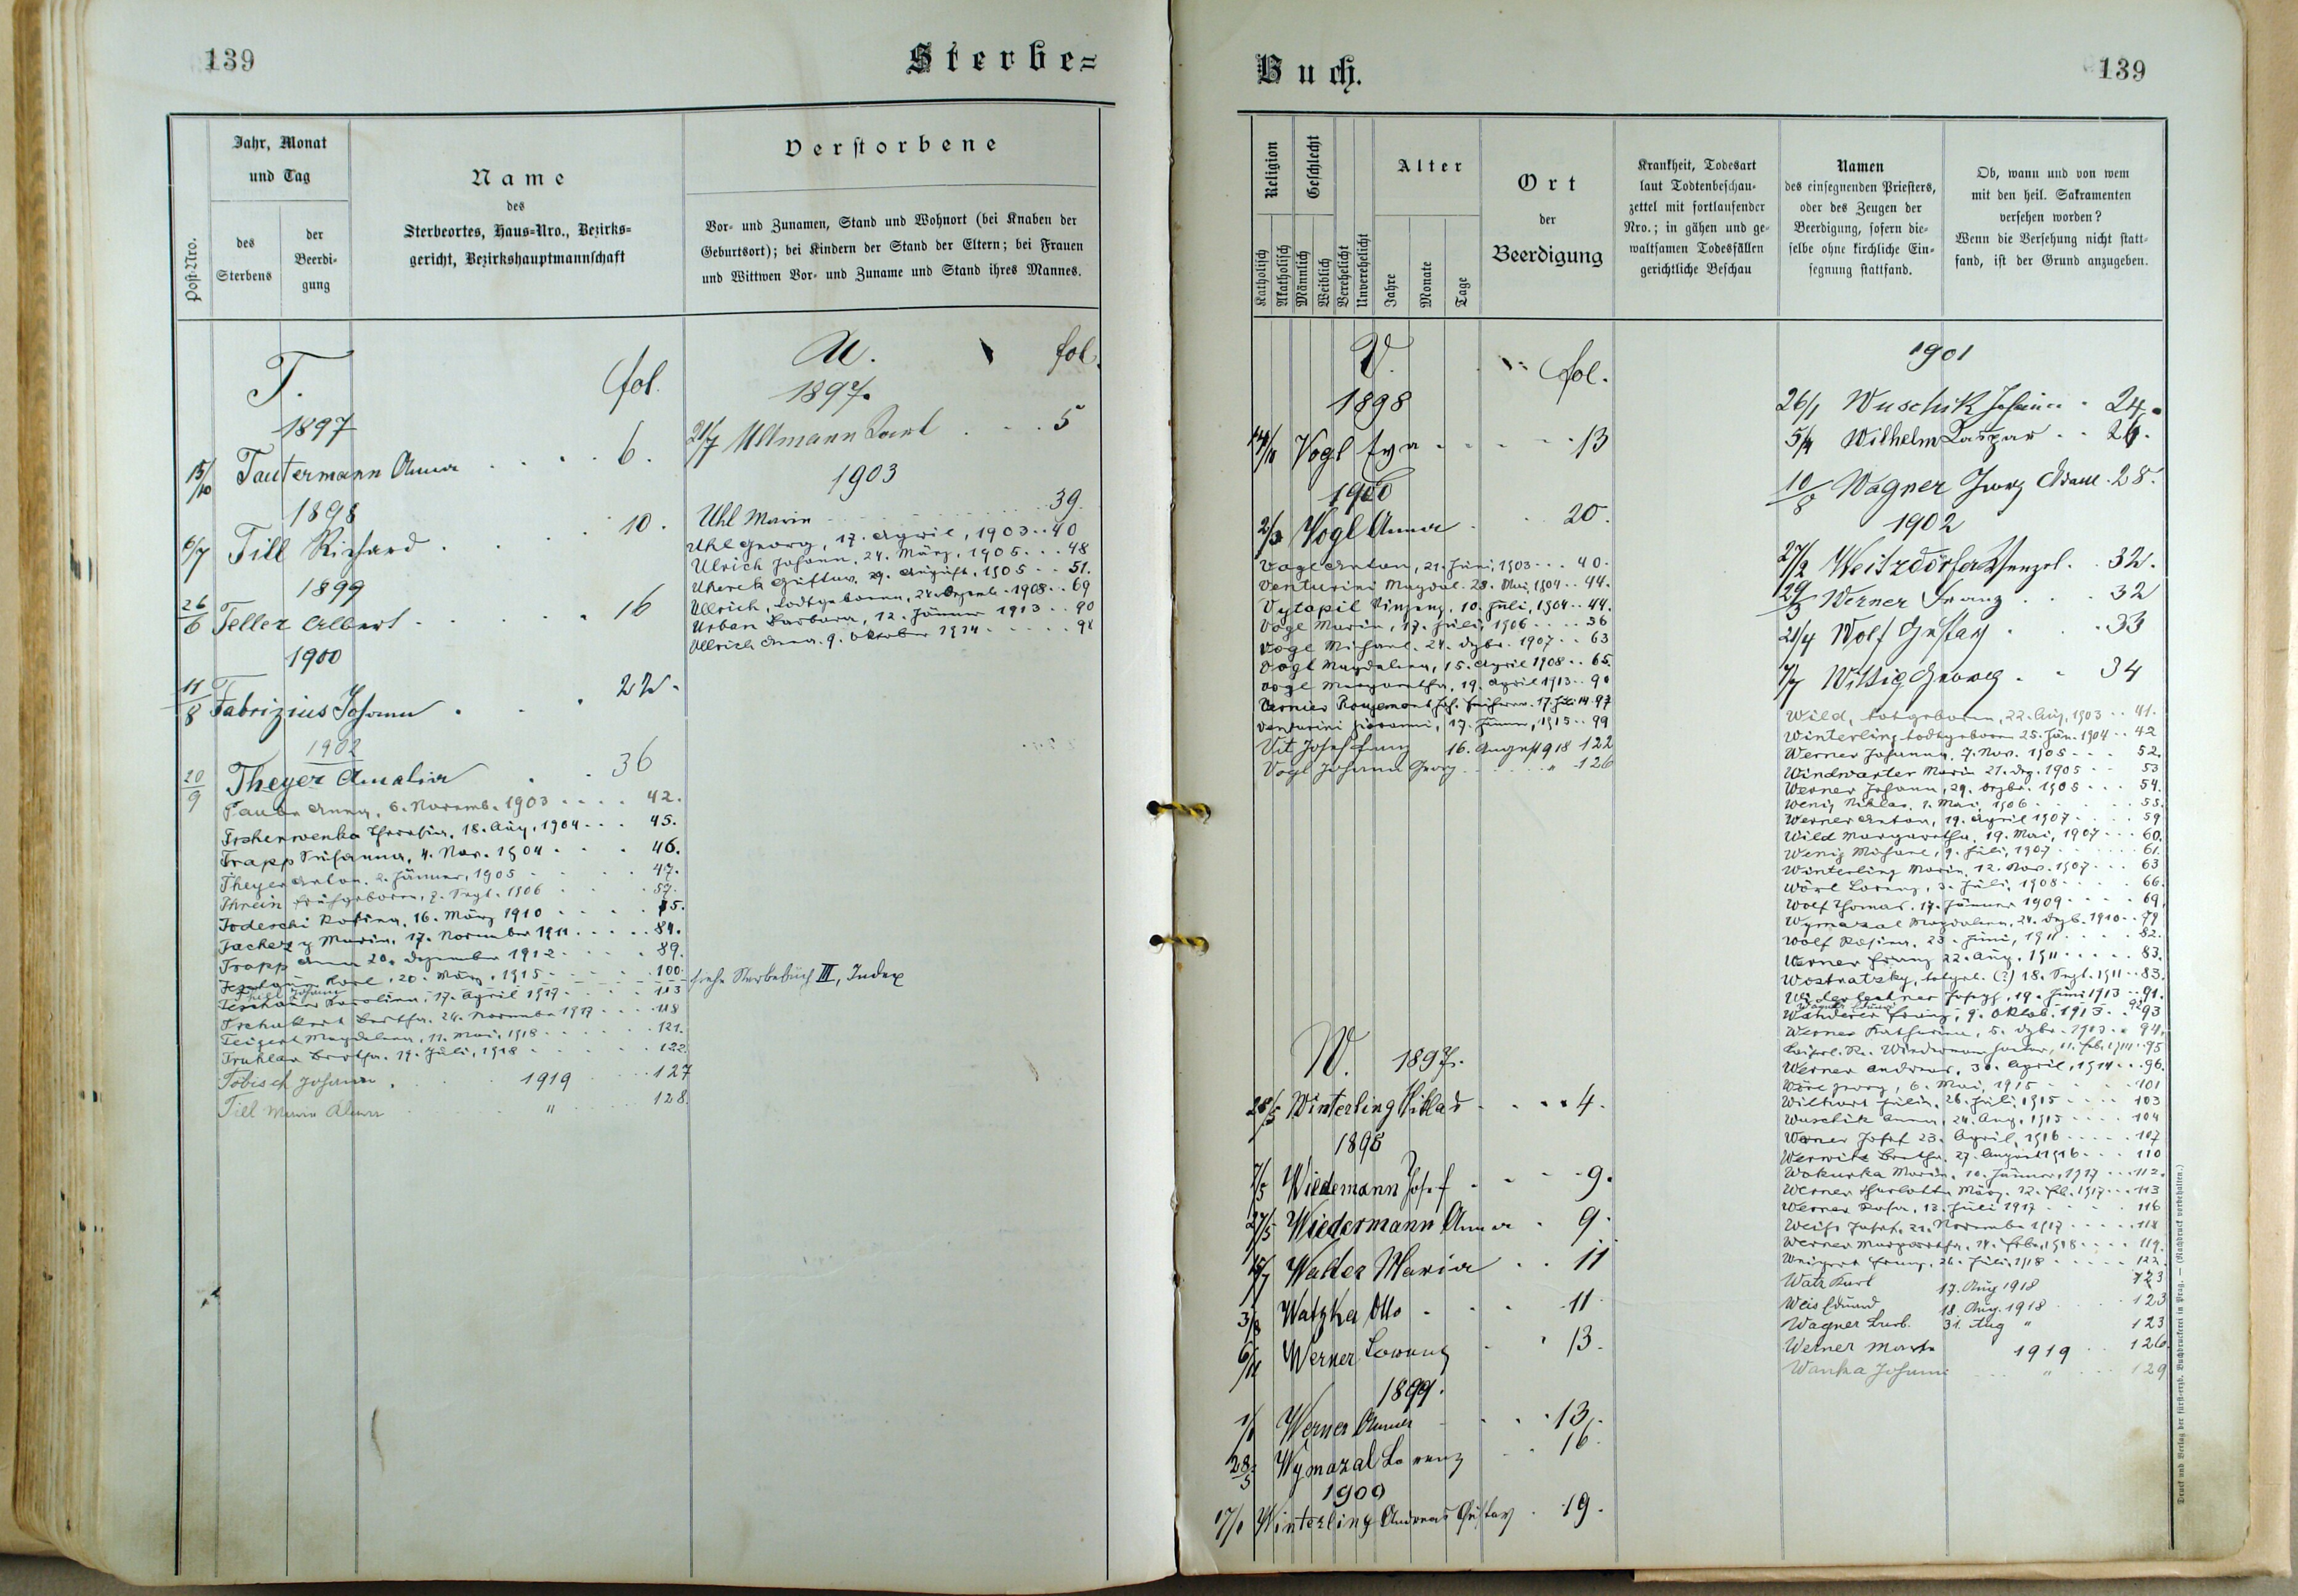 139
Sterbe=
Post-Nro.
Jahr, Monat
und Tag
des
Sterbens
der
Beerdi-
gung
Name
des
Sterbeortes, Haus-Nro., Bezirks=
gericht, Bezirkshauptmannschaft
Verstorbene
Vor- und Zunamen, Stand und Wohnort (bei Knaben der
Geburtsort); bei Kindern der Stand der Eltern; bei Frauen
und Wittwen Vor- und Zuname und Stand ihres Mannes.
T. fol.
1897
15/10 Tautermann Anna . . . . 6.
1898
6/7 Till Richard . . . . 10.
1899
26/6 Teller Albert . . . . . 16
1900
11/8 Fabrizius Johann . . . 22.
1902
20/9 Theyer Amalia . . 36
Anna, 6. Novemb. 1903 . . . . 42.
18. Aug. 1904 . . . 45.
Trapp Susanna, 4. Nov. 1904 . . . 46.
Theyer Anton. 2. Jänner, 1905 . . . . 47.
Threin frühgeboren, 7. Sept. 1906 . . . 57.
Todeschi Rosina, 16. März 1910 . . . .
Maria, 17. November 1911 . . . . . 84.
Trapp Anna 20. Dezember 1912 . . . . 89.
Karl, 20. März, 1915 . . . . . 100.
Johann
Karolina, 17. April 1917 . . . . 113
Bertha. 24. November 1917 . . . . 118
Teigert Magdalena, 11. Mai, 1918 . . . . . 121.
Truhlar Bertha. 19. Juli, 1918 . . . . . 122.
Töbisch Johann . . . 1919 . . . 127
Till Maria . . . " . . . 128.
U. fol.
1897.
21/7 Ullmann Karl . . . 5
1903
Uhl Maria . . . . . 39.
Uhl Georg, 17. April, 1903 . . 40
Ulrich Johann, 24. März, 1905 . . . 48
Uherek Gustav, 29. August, 1905 . . 51.
Ullrich, todtgeboren, 24. Dezemb. 1908 . . 69
Urban Barbara, 12. Jänner 1913 . . 90
Ullrich Anna. 9. Oktober 1914 . . . . . 98
siehe Sterbebuch III, Index
Buch.
139
Religion
Katholisch
Akatholisch
Geschlecht
Männlich
Weiblich
Verehelicht
Unverehelicht
Alter
Jahre
Monate
Tage
Ort
der
Beerdigung
Krankheit, Todesart
laut Todtenbeschau-
zettel mit fortlaufender
Nro.; in gähen und ge-
waltsamen Todesfällen
gerichtliche Beschau
Namen
des einsegnenden Priesters,
oder des Zeugen der
Beerdigung, sofern die-
selbe ohne kirchliche Ein-
segnung stattfand.
Ob, wann und von wem
mit den heil. Sakramenten
versehen worden?
Wenn die Versehung nicht statt-
fand, ist der Grund anzugeben.
V. fol.
1898
14/11 Vogl Eva . . . . . 13
1900
2/3 Vogl Anna . . 20.
Vogl Anton, 21. Juni, 1903 . . . 40.
Venturini Magdal. 28. Mai, 1904 . . 44.
Vytopil Vinzenz, 10. Juli, 1904 . . 44.
Vogl Maria, 17. Juli, 1906 . . . . 56
Vogl Michael. 24. Dzbr. 1907 . . 63
Vogl Magdalena, 15. April 1908 . . 65.
Vogl Margaretha, 19. April 1913 . . 90
Vernier Rougemont 97
Venturini Giovanni, 17. Jänner, 1915 . . 99
Vit Josef Franz 16. August 918 122
Vogl Johann Georg . . . . " . 126
W. 1897.
28/5 Winterling Niklas . . . . 4.
1898
7/5 Wiedemann Josef . . . 9.
27/5 Wiedermann Anna . 9.
15/7 Walter Maria . . 11
3/8 Watzka Otto . . . 11
6/11 Werner Lorenz . . 13.
1899.
1/1 Werner Anna . . . 13.
28/5 Wymazal Lorenz . . 16.
1900
17/1 Winterling Andreas Gustav . 19.
1901
26/1 Wuschik Johann . 24.
5/4 Wilhelm Kaspar . . 26.
10/8 Wagner Georg Adam . 28.
1902
27/2 Weitzdörfer Wenzel . . 32.
29/3 Werner Franz . . . 32
21/4 Wolf Gustav . . . 33
7/7 Wittig Georg . . 34
Wild, totgeboren, 22. Aug, 1903 . . 41.
Winterling todtgeboren 25. Jän. 1904 . . 42
Werner Johanna, 7. Nov. 1905 . . . 52.
Windwarter Maria 21. Dez. 1905 . . 53
Werner Johann, 29. Dezbr. 1905 . . . 54.
Wenig Niklas, 1. Mai, 1906 . . . . . 55.
Werner Anton, 19. April 1907 . . . . 59
Wild Margaretha, 19. Mai, 1907 . . . 60.
Wenig Michael, 9. Juli, 1907 . . . . . 61.
Winterling Maria, 12. Nov. 1907 . . . 63
Wörl Lorenz, 3. Juli, 1908 . . . . 66.
Wolf Thomas. 17. Jänner 1909 . . . . 69.
Wymazal Magdalena, 24. Dezb. 1910 . . 79
Wolf Rosina, 23. Juni, 1911 . . . . 82.
Werner Franz 22. Aug. 1911 . . . . . 83.
Wostratzky, totgeb. (?) 18. Sept. 1911 . . 83.
Josefa, 19. Juni 1913 . . 91.
Wagner
Wanderer Franz, 9. Oktob. 1913 . . 93
Werner Katharina, 5. Dzbr. 1913 . . 94.
95
Werner Andreas, 30. April, 1914 . . . 96.
Wörl Georg, 6. Mai, 1915 . . . . 101
Wilhart Julia, 26. Juli, 1915 . . . . 103
Wuschik Anna, 24. Aug, 1915 . . . . 104
Werner Josef 23. April, 1916 . . . . . 107
Bertha. 27. August 1916 . . . 110
Wokurka Maria, 10. Jänner, 1917 . . . 112.
Werner 12. Feb. 1917 . . . 113
Werner Rosa, 13. Juli 1917 . . . . 116
Weiß Josef, 21. November 1917 . . . . . 118
Werner Margaretha, 14. Febr. 1918 . . . . 119.
Weigert Franz, 26. Juli, 1918 . . . . . 122.
Watz Karl 17. Aug 1918 123
Weis Eduard 18. Aug. 1918 . . . 123
Wagner Barb. 31. Aug " 123
Werner 1919 . . 126
Wanka Johann . . . " . . 129
Druck und Verlag der fürst-erzb. Buchdruckerei in Prag. — (Nachdruck vorbehalten.)